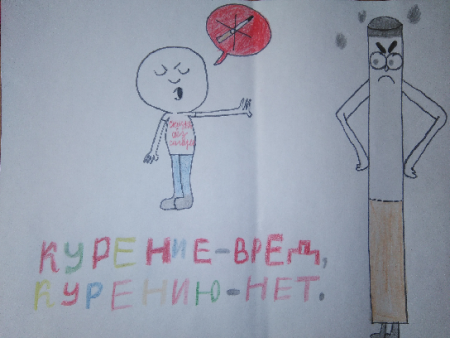 КУРЕНИЕ-ВРЕД,
КУРЕНИЮ-НЕТ.